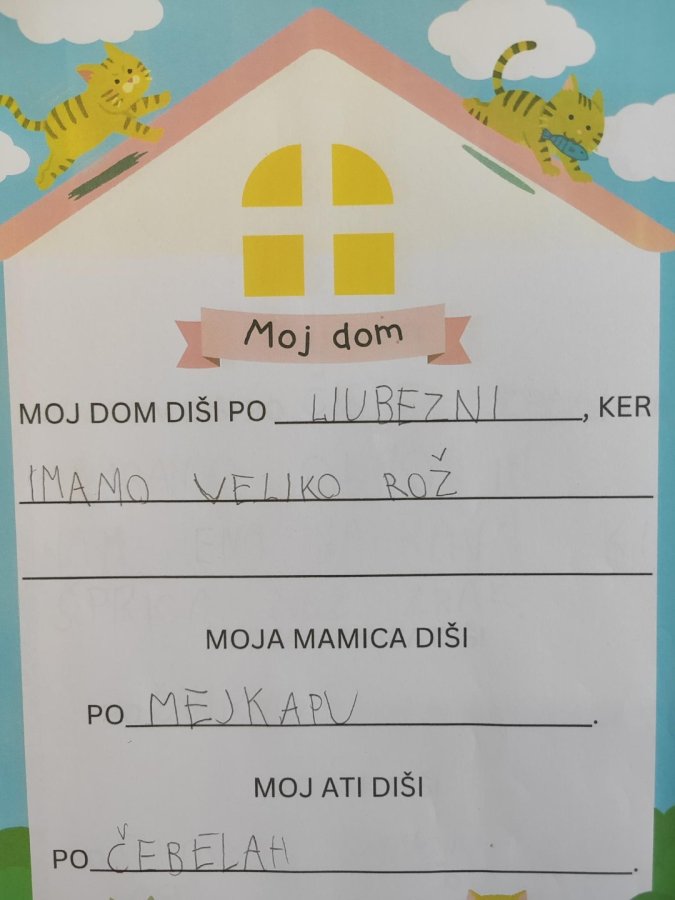 Moj dom
MOJ DOM DIŠI PO LJUBEZNI, KER
IMAMO VELIKO ROŽ
MOJA MAMICA DIŠI
PO MEJKAPU.
MOJ ATI DIŠI
PO ČEBELAH.